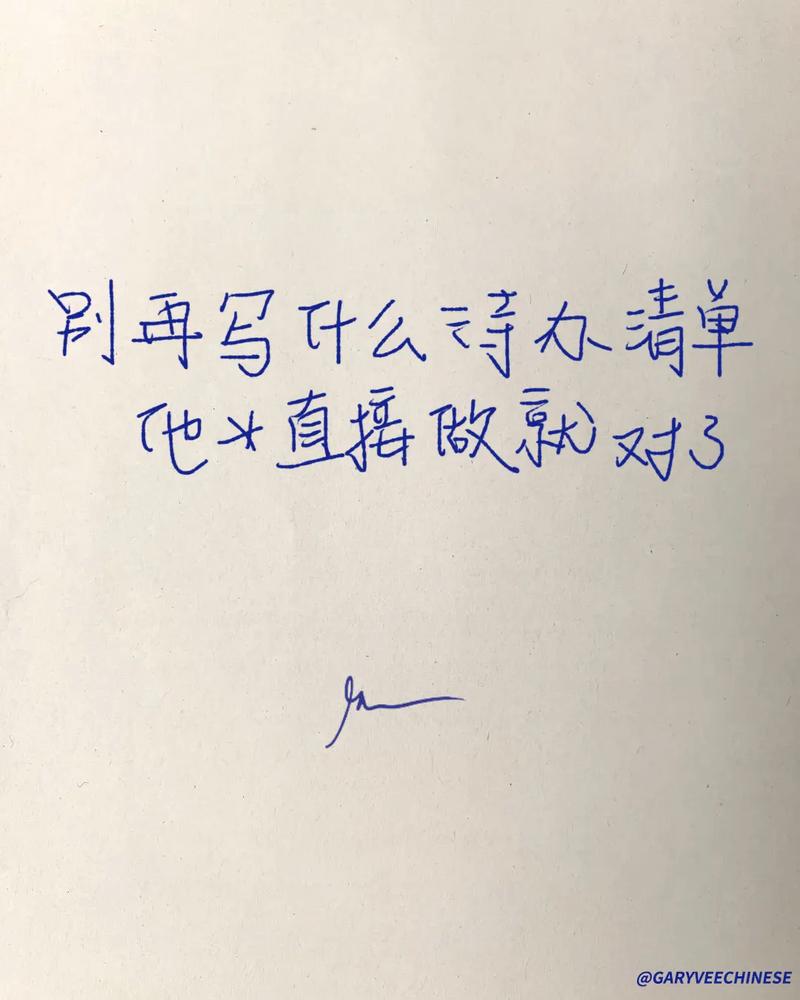 别再写什么待办清单
他*直接做就对了
@GARYVEECHINESE